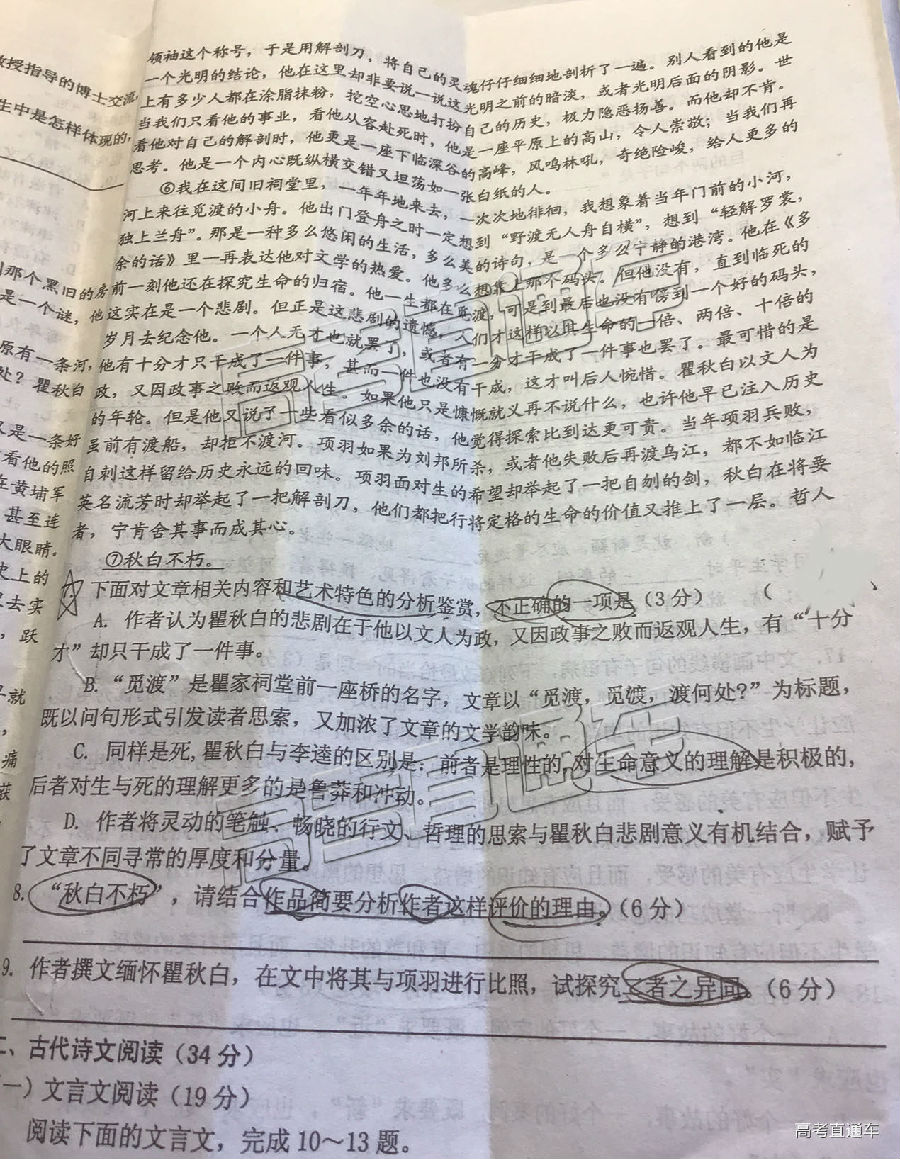 教授指导的博士交流
生中是怎样体现的,
领袖这个称号，于是用解剖刀，将自己的灵魂仔仔细细地剖析了一遍。别人看到的他是
一个光明的结论，他在这里却非要说一说这光明之前的暗淡，或者光明后面的阴影。世
上有多少人都在涂脂抹粉，挖空心思地打扮自己的历史，极力隐恶扬善。而他却不肯。
当我们只看他的事业，看他从容赴死时，他是一座平原上的高山，令人崇敬；当我们再
看他对自己的解剖时，他更是一座下临深谷的高峰，风鸣林吼，奇绝险峻，给人更多的
思考。他是一个内心既纵横交错又坦荡如一张白纸的人。
⑥我在这间旧祠堂里，一年年地来去，一次次地徘徊，我想象着当年门前的小河，
河上来往觅渡的小舟。他出门登舟之时一定想到“野渡无人舟自横”，想到“轻解罗裳，
独上兰舟”。那是一种多么悠闲的生活，多么美的诗句，是一个多么宁静的港湾。他在《多
余的话》里一再表达他对文学的热爱。他多么想靠上那个码头。但他没有，直到临死的
前一刻他还在探究生命的归宿。他一生都在觅渡，可是到最后也没有傍到一个好的码头，
这实在是一个悲剧。但正是这悲剧的遗憾，人们才这样以其生命的一倍、两倍、十倍的
岁月去纪念他。一个人无才也就罢了，或者有一分才干成了一件事也罢了。最可惜的是
他有十分才只干成了一件事，甚而一件也没有干成，这才叫后人惋惜。瞿秋白以文人为
政，又因政事之败而返观人生。如果他只是慷慨就义再不说什么，也许他早已注入历史
的年轮。但是他又说了一些看似多余的话，他觉得探索比到达更可贵。当年项羽兵败，
虽前有渡船，却拒不渡河。项羽如果为刘邦所杀，或者他失败后再渡乌江，都不如临江
自刺这样留给历史永远的回味。项羽面对生的希望却举起了一把自刎的剑，秋白在将要
英名流芳时却举起了一把解剖刀，他们都把行将定格的生命的价值又推上了一层。哲人
者，宁肯舍其事而成其心。
⑦秋白不朽。
下面对文章相关内容和艺术特色的分析鉴赏，不正确的一项是（3分） （
A. 作者认为瞿秋白的悲剧在于他以文人为政，又因政事之败而返观人生，有“十分
才”却只干成了一件事。
B. “觅渡”是瞿家祠堂前一座桥的名字，文章以“觅渡，觅渡，渡何处?”为标题，
既以问句形式引发读者思索，又加浓了文章的文学韵味。
C. 同样是死,瞿秋白与李逵的区别是：前者是理性的,对生命意义的理解是积极的，
后者对生与死的理解更多的是鲁莽和冲动。
D. 作者将灵动的笔触、畅晓的行文、哲理的思索与瞿秋白悲剧意义有机结合，赋予
了文章不同寻常的厚度和分量。
8. “秋白不朽”，请结合作品简要分析作者这样评价的理由。（6分）
9. 作者撰文缅怀瞿秋白，在文中将其与项羽进行比照，试探究二者之异同。（6分）
二、古代诗文阅读（34分）
一）文言文阅读（19分）
阅读下面的文言文，完成10～13题。
高考直通车